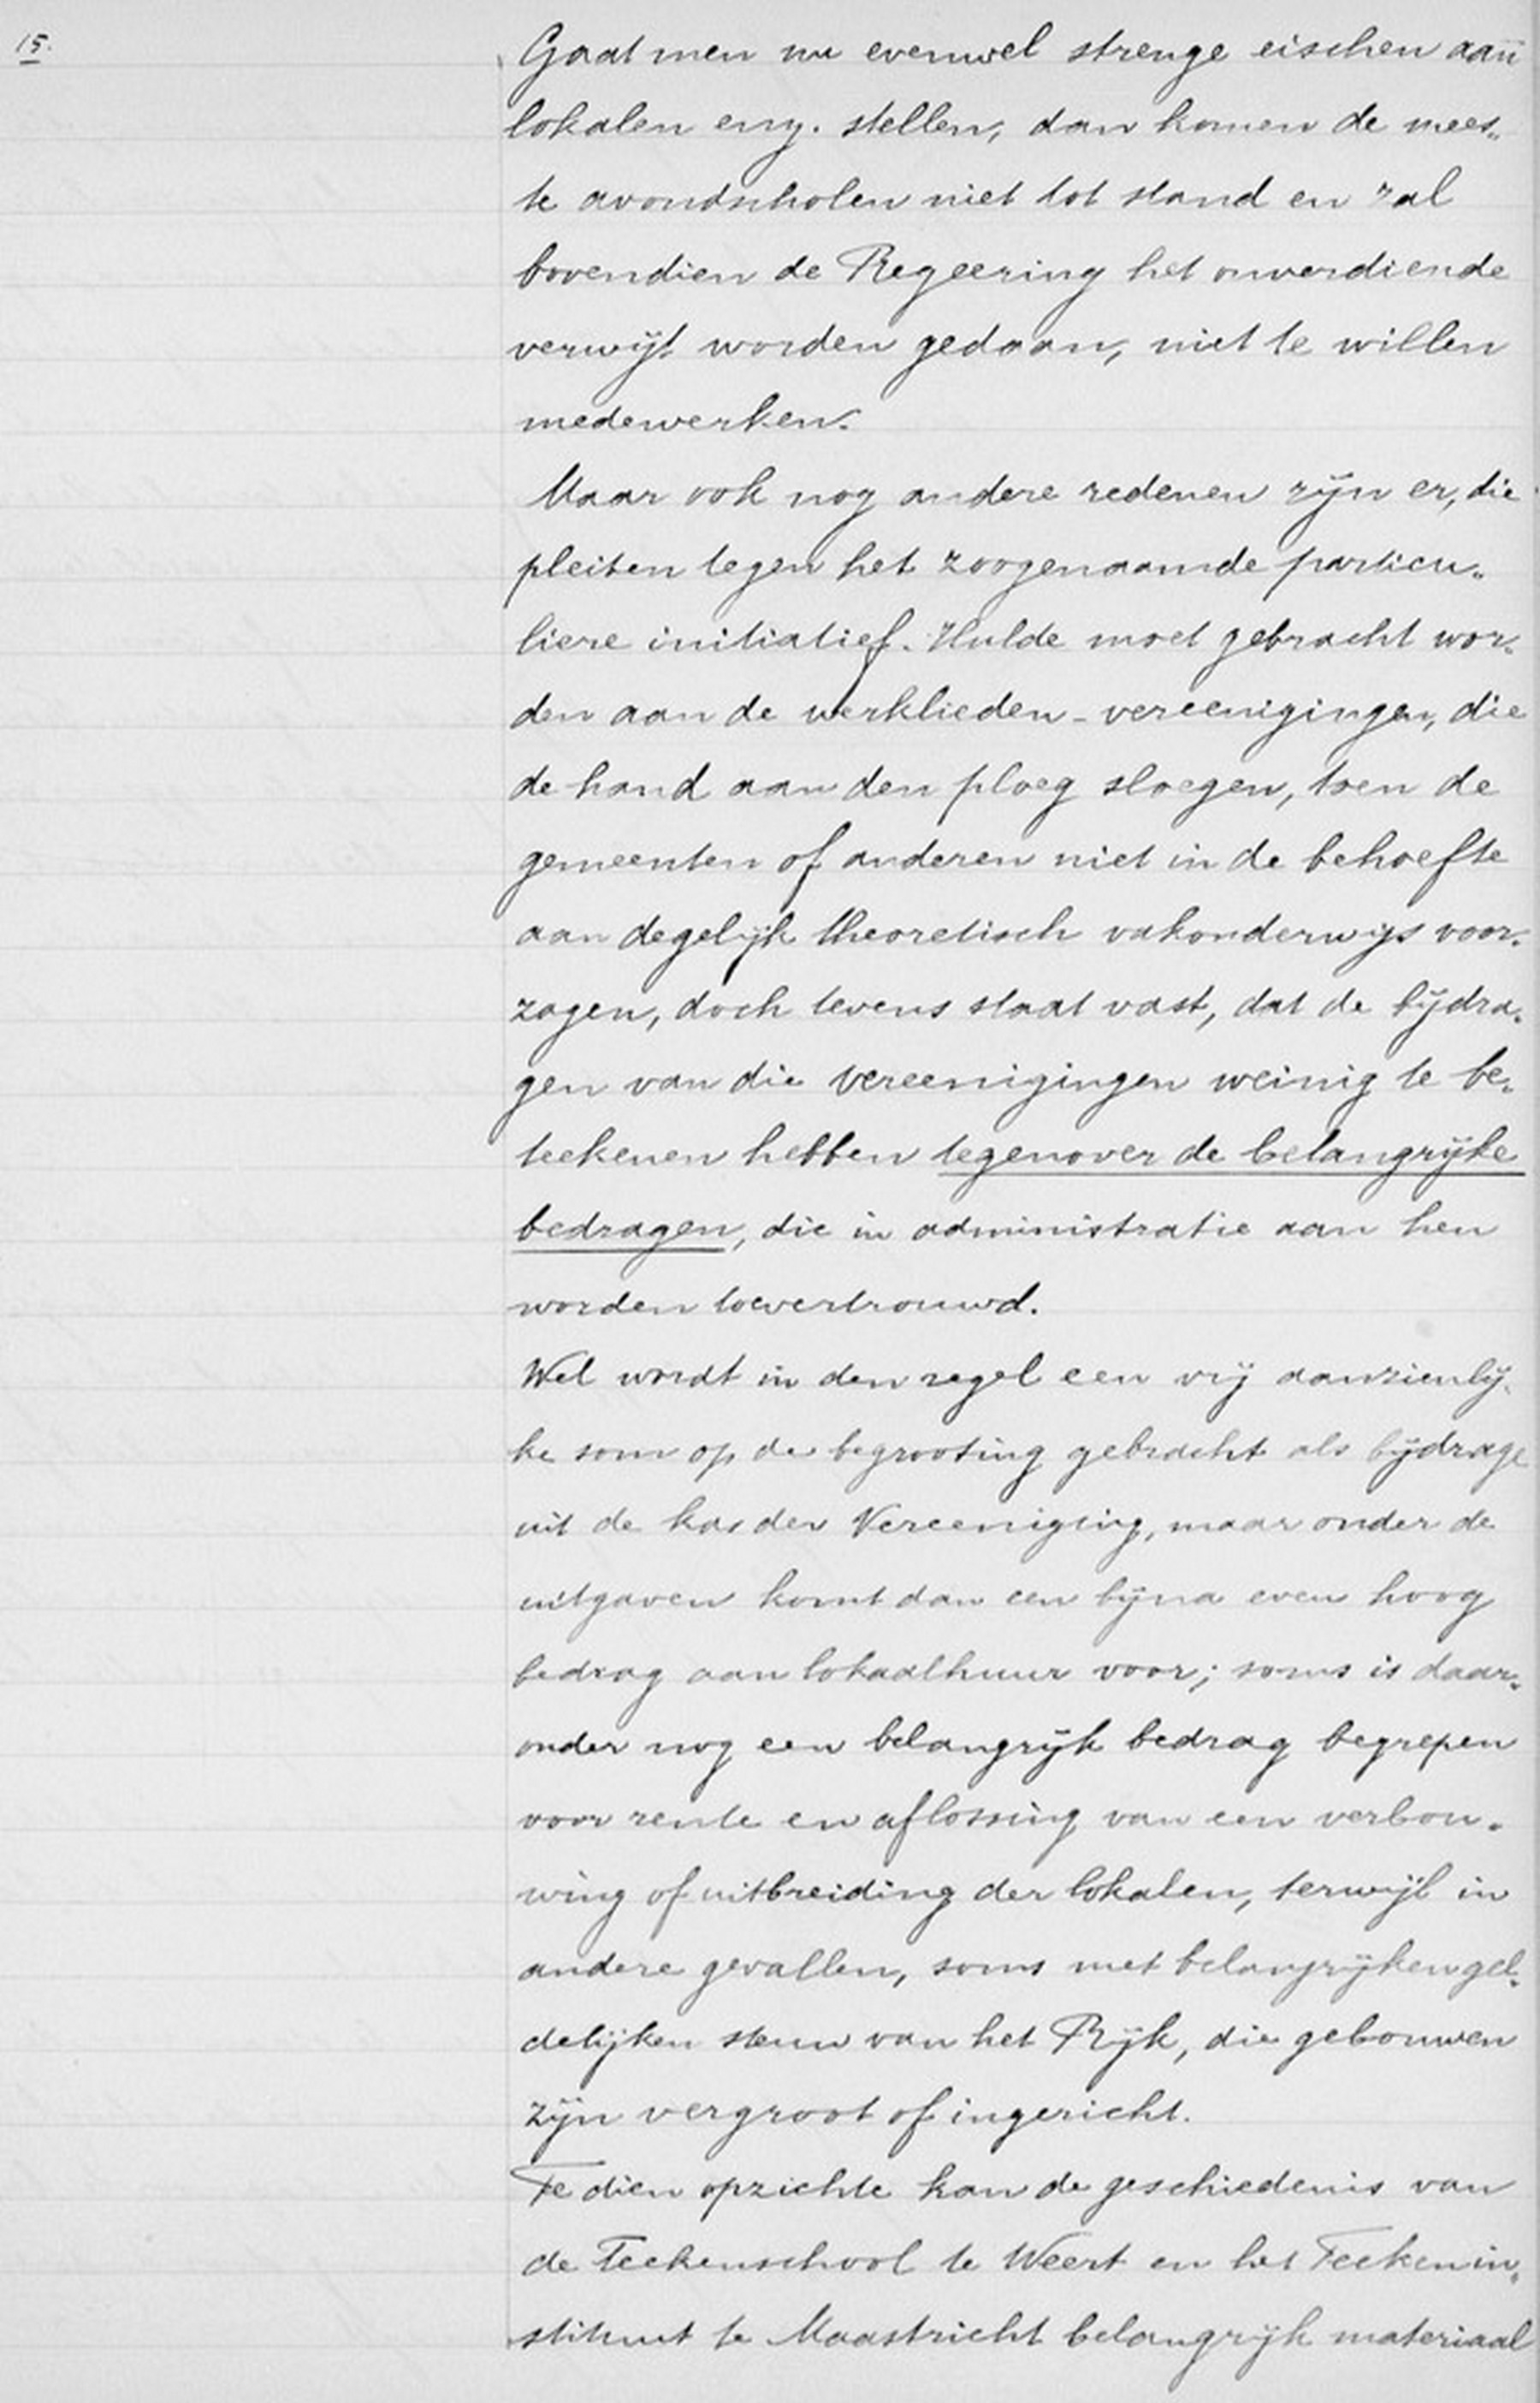 15.
Gaat men nu evenwel strenge eischen aan
lokalen enz. stellen, dan komen de mees-
te avondscholen niet tot stand en zal
bovendien de Regeering het onverdiende
verwijt worden gedaan, niet te willen
medewerken.
Maar ook nog andere redenen zijn er, die
pleiten tegen het zoogenaamde particu-
liere initiatief. Hulde moet gebracht wor-
den aan de werklieden-vereenigingen, die
de hand aan den ploeg sloegen, toen de
gemeenten of anderen niet in de behoefte
aan degelijk theoretisch vakonderwijs voor-
zagen, doch tevens staat vast, dat de bijdra-
gen van die vereenigingen weinig te be-
teekenen hebben tegenover de belangrijke
bedragen, die in administratie aan hen
worden toevertrouwd.
Wel wordt in den regel een vrij aanzienlij-
ke som op de begrooting gebracht als bijdrage
uit de kas der Vereeniging, maar onder de
uitgaven komt dan een bijna even hoog
bedrag aan lokaalhuur voor; soms is daar-
onder nog een belangrijk bedrag begrepen
voor rente en aflossing van een verbou-
wing of uitbreiding der lokalen, terwijl in
andere gevallen, soms met belangrijken gel-
delijken steun van het Rijk, die gebouwen
zijn vergroot of ingericht.
Te dien opzichte kan de geschiedenis van
de Teekenschool te Weert en het Teekenin-
stituut te Maastricht belangrijk materiaal